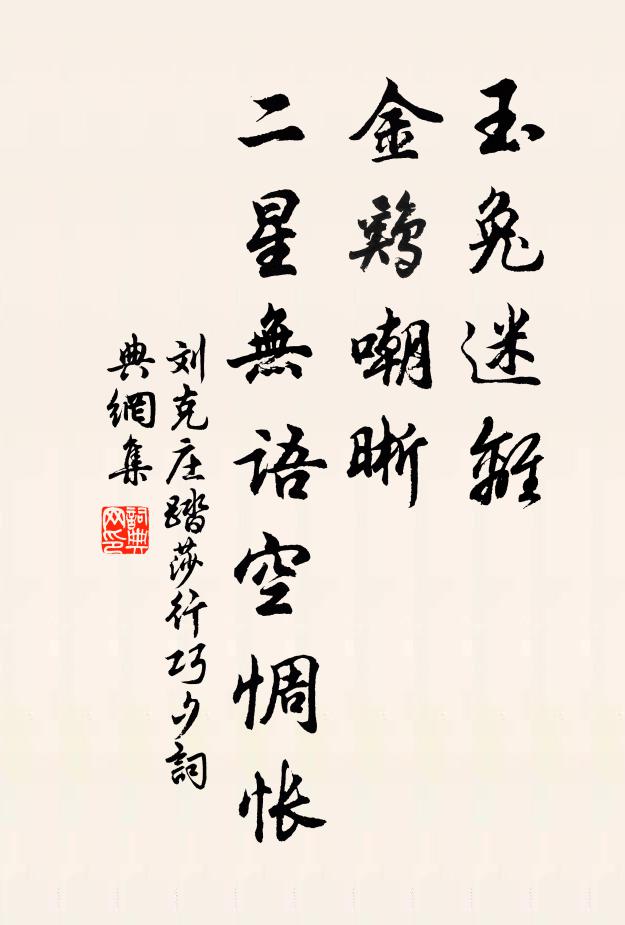 玉兔迷離
金鷄嘲晰
二星無語空惆悵
刘克庄踏莎行巧夕詞
典網集
詞典网印